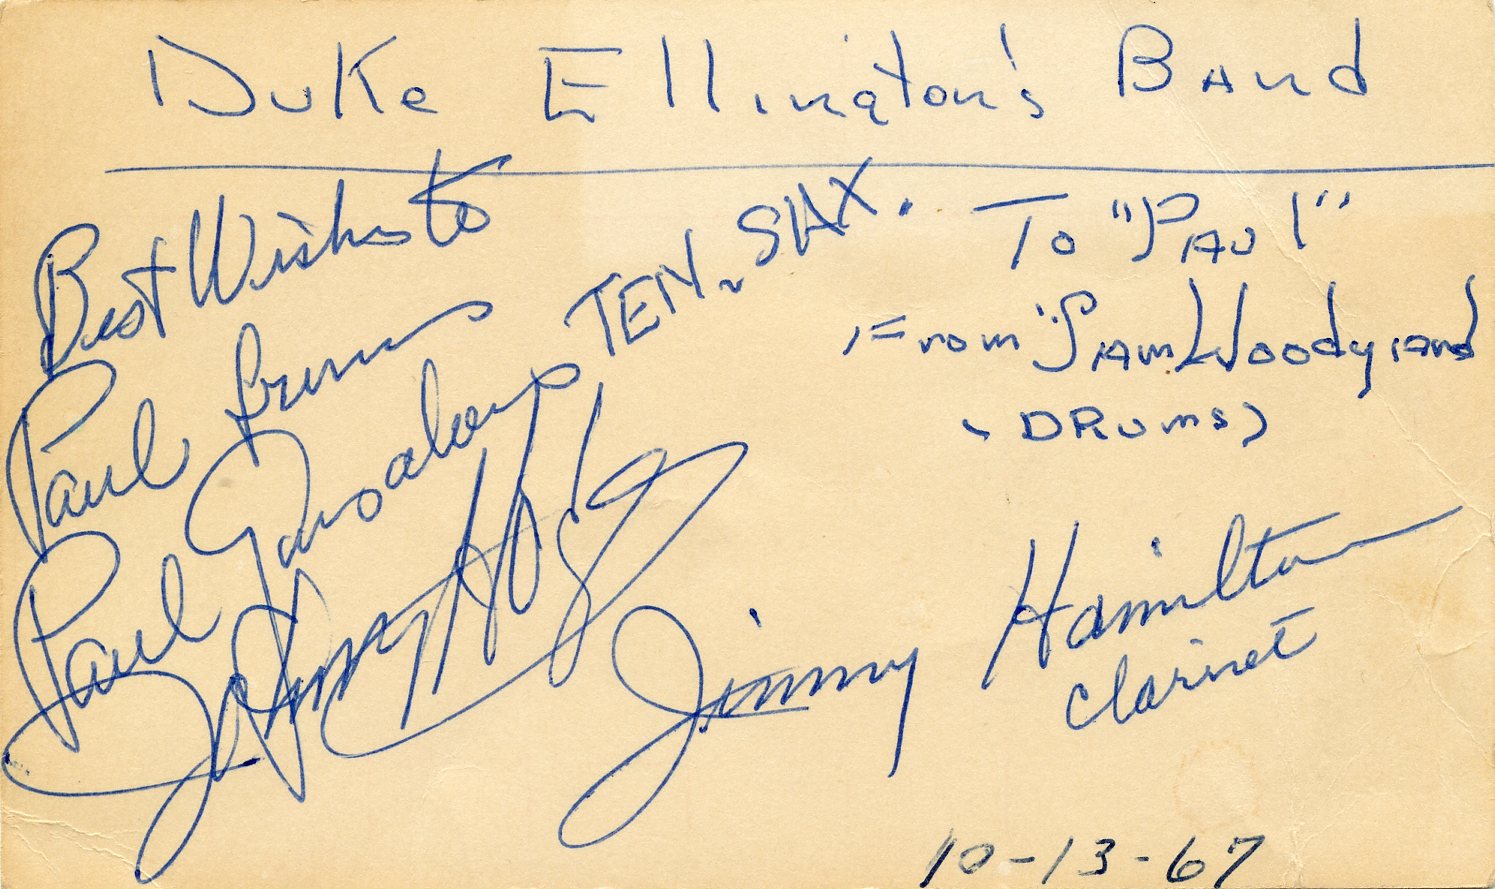 Duke Ellington's Band
Best Wishes to
Paul from
Paul Gonsalves TEN. SAX.
To "Paul"
From "Sam Woodyard
(DRums)
Johnny Hodges
Jimmy Hamilton
Clarinet
10-13-67